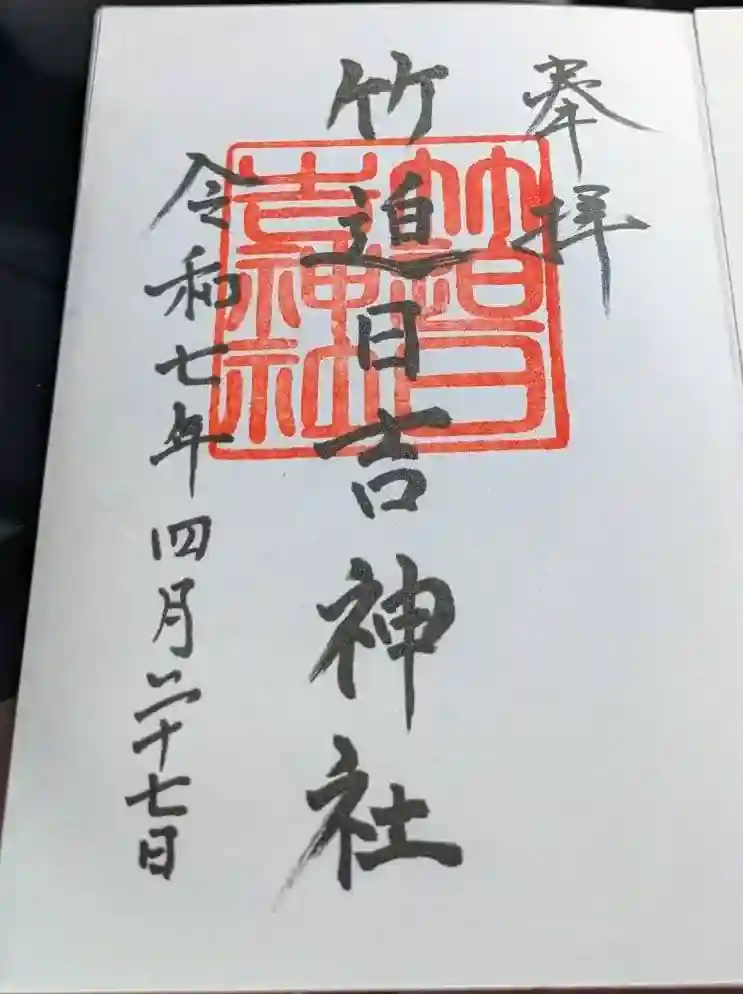 奉拝
竹迫日吉神社
令和七年四月二十七日
竹迫日
吉神社